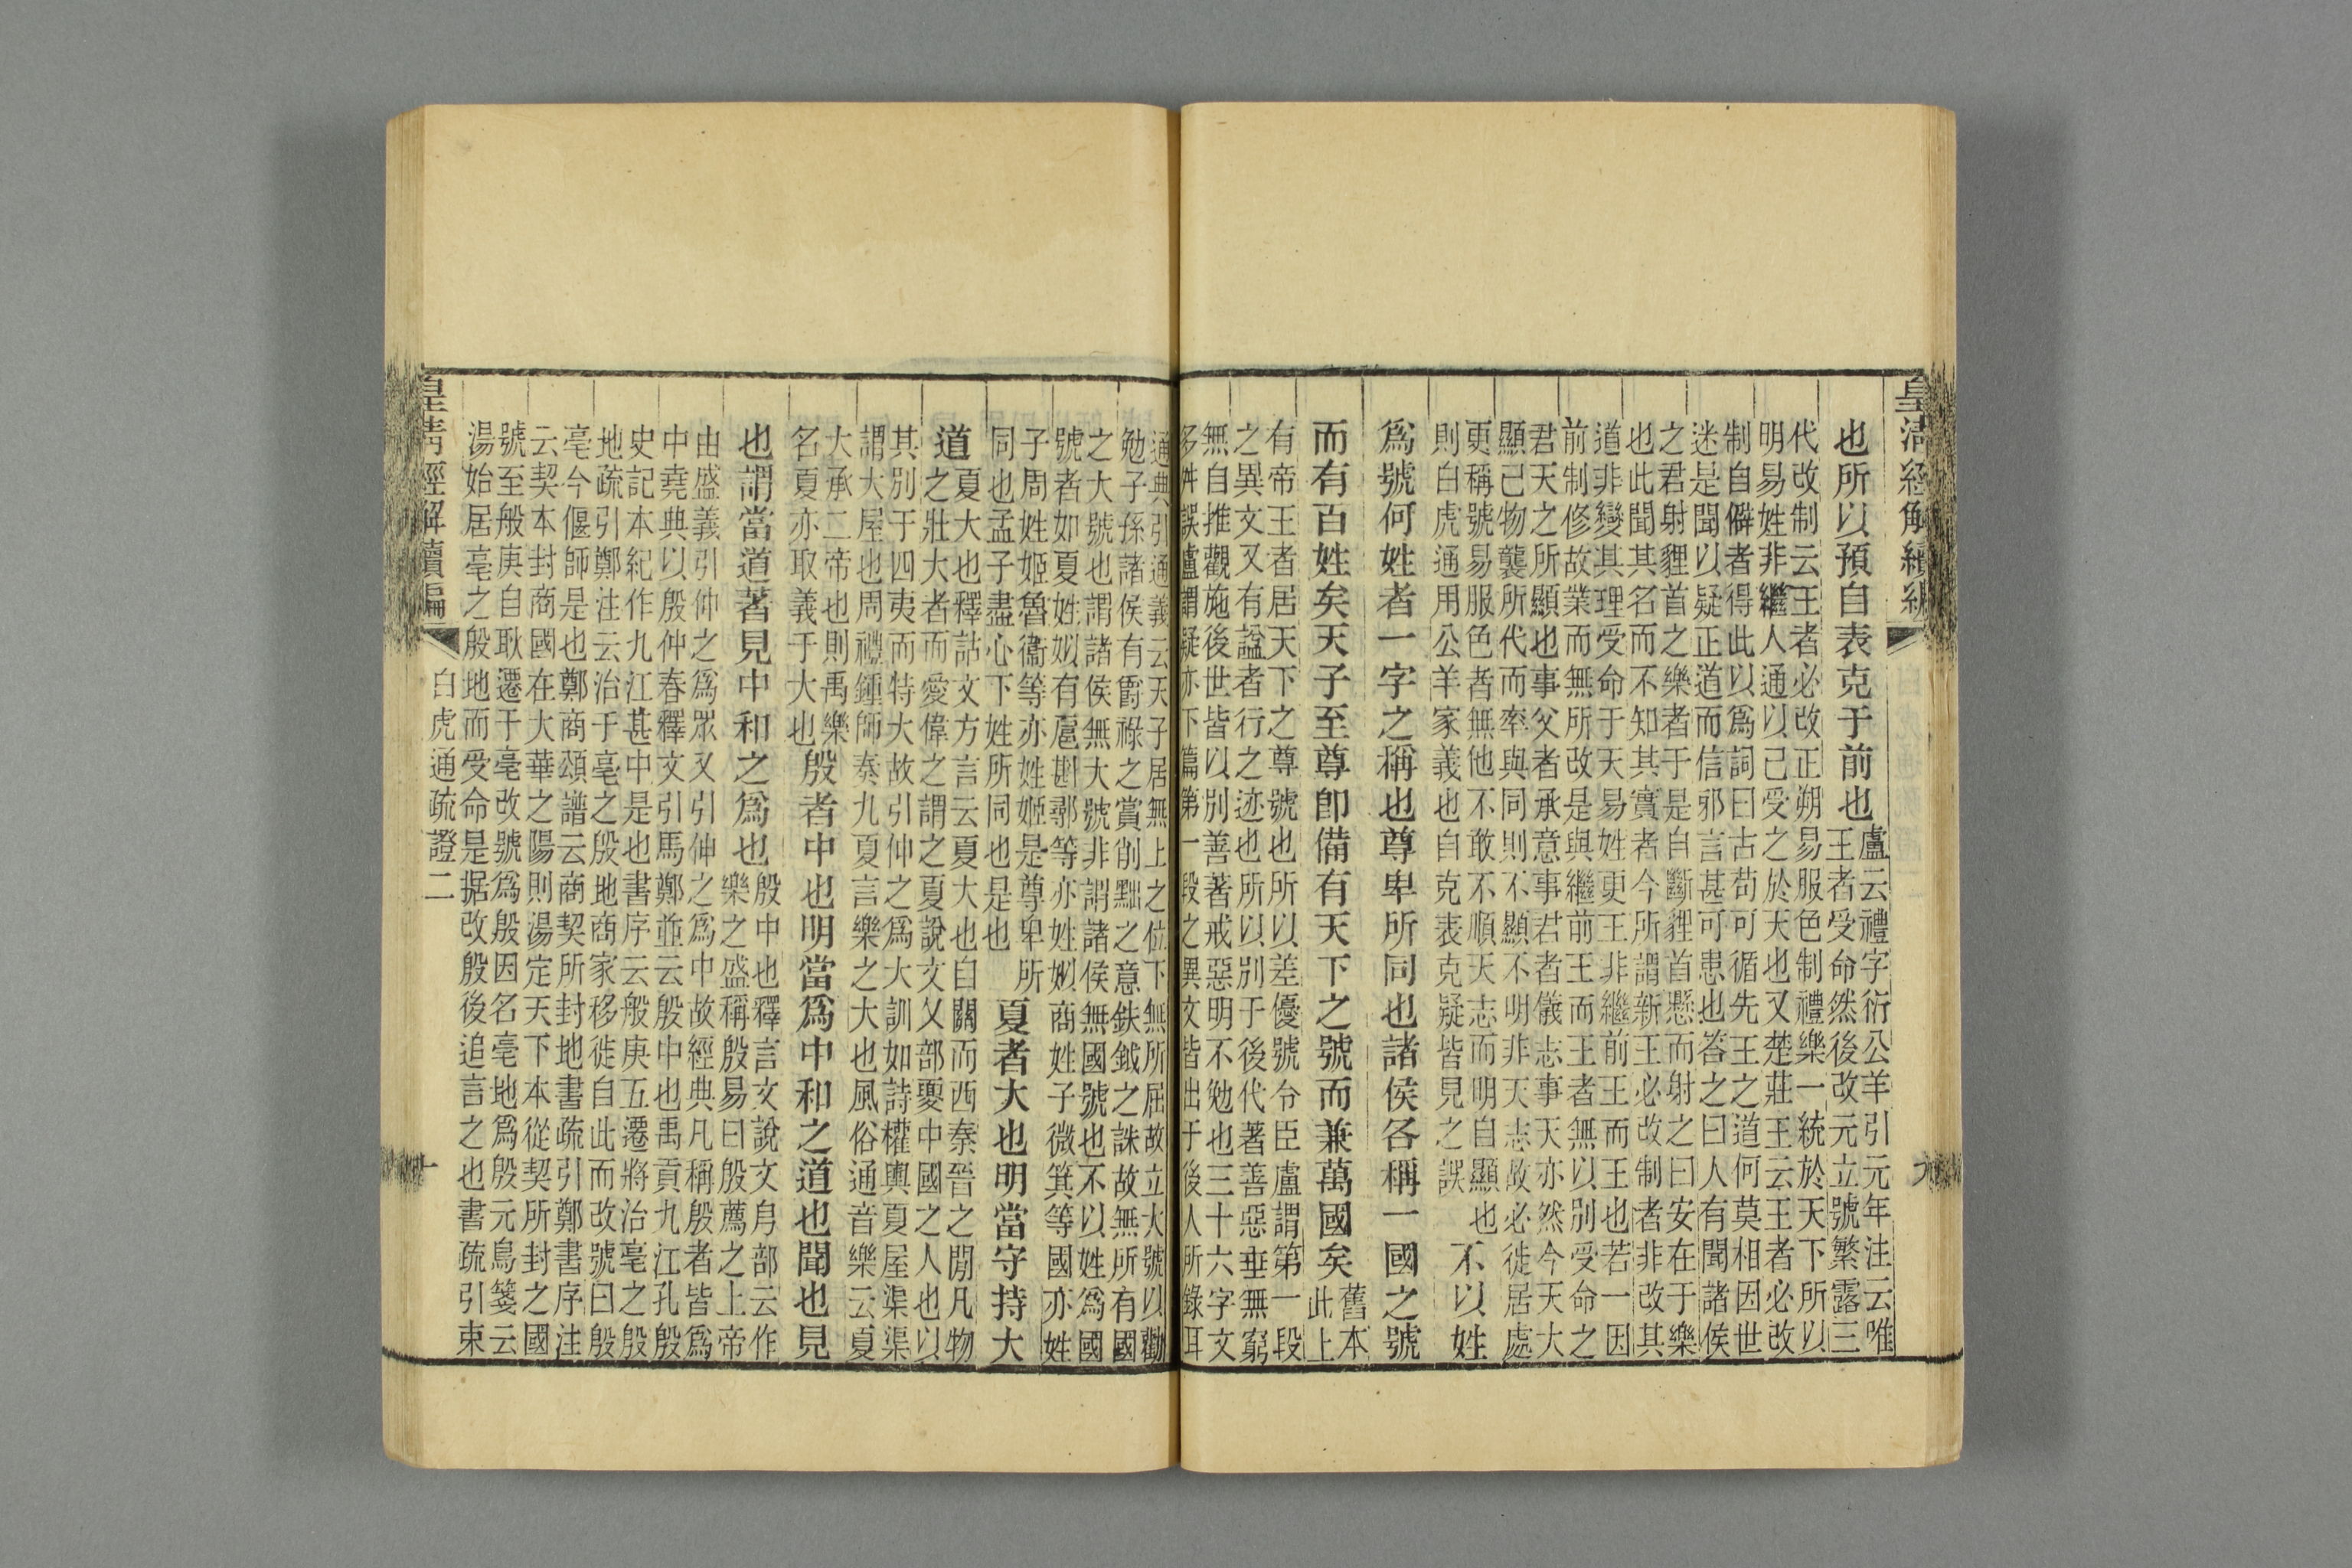 皇淸經解續編
也所以預自表克于前也盧云禮字衍公羊引元年注云唯
王者受命然後改元立號繁露三
代改制云王者必改正朔易服色制禮樂一統於天下所以
明易姓非繼人通以己受之於天也又楚莊王云王者必改
制自僻者得此以爲詞曰古苟可循先王之道何莫相因世
迷是聞以疑正道而信邪言甚可患也答之曰人有聞諸侯
之君射貍首之樂者于是自斷貍首懸而射之曰安在于樂
也此聞其名而不知其實者今所謂新王必改制者非改其
道非變其理受命于天易姓更王非繼前王而王也若一因
前制修故業而無所改是與繼前王而王者無以別受命之
君天之所顯也事父者承意事君者儀志事天亦然今天大
顯己物襲所代而率與同則不顯不明非天志故必徙居處
更稱號易服色者無他不敢不順天志而明自顯也
則白虎通用公羊家義也自克表克疑皆見之誤
不以姓
爲號何姓者一字之稱也尊卑所同也諸侯各稱一國之號
而有百姓矣天子至尊卽備有天下之號而兼萬國矣舊本
此上
有帝王者居天下之尊號也所以差優號令臣盧謂第一段
之異文又有諡者行之迹也所以別于後代著善惡垂無窮
無自推觀施後世皆以別善著戒惡明不勉也三十六字文
多舛誤盧謂疑亦下篇第一段之異文皆出于後人所錄耳
通典引通義云天子居無上之位下無所屈故立大號以勸
勉子孫諸侯有爵祿之賞削黜之意鈇鉞之誅故無所有國
之大號也謂諸侯無大號非謂諸侯無國號也不以姓爲國
號者如夏姓姒有扈斟鄩等亦姓姒商姓子微箕等國亦姓
子周姓姬魯衞等亦姓姬是尊卑所
同也孟子盡心下姓所同也是也
夏者大也明當守持大
道夏大也釋詁文方言云夏大也自關而西秦晉之閒凡物
之壯大者而愛偉之謂之夏說文夊部夓中國之人也以
其別于四夷而特大故引伸之爲大訓如詩權輿夏屋渠渠
謂大屋也周禮鍾師奏九夏言樂之大也風俗通音樂云夏
大承二帝也則禹樂
名夏亦取義于大也
殷者中也明當爲中和之道也聞也見
也謂當道著見中和之爲也殷中也釋言文說文㐆部云作
樂之盛稱殷易曰殷薦之上帝
由盛義引伸之爲眾又引伸之爲中故經典凡稱殷者皆爲
中堯典以殷仲春釋文引馬鄭並云殷中也禹貢九江孔殷
史記本紀作九江甚中是也書序云般庚五遷將治亳之殷
地疏引鄭注云治于亳之殷地商家移徙自此而改號曰殷
亳今偃師是也鄭商頌譜云商契所封地書疏引鄭書序注
云契本封商國在大華之陽則湯定天下本從契所封之國
號至般庚自耿遷于亳改號爲殷因名亳地爲殷元鳥箋云
湯始居亳之殷地而受命是据改殷後追言之也書疏引束
皇淸經解續編 白虎通疏證二